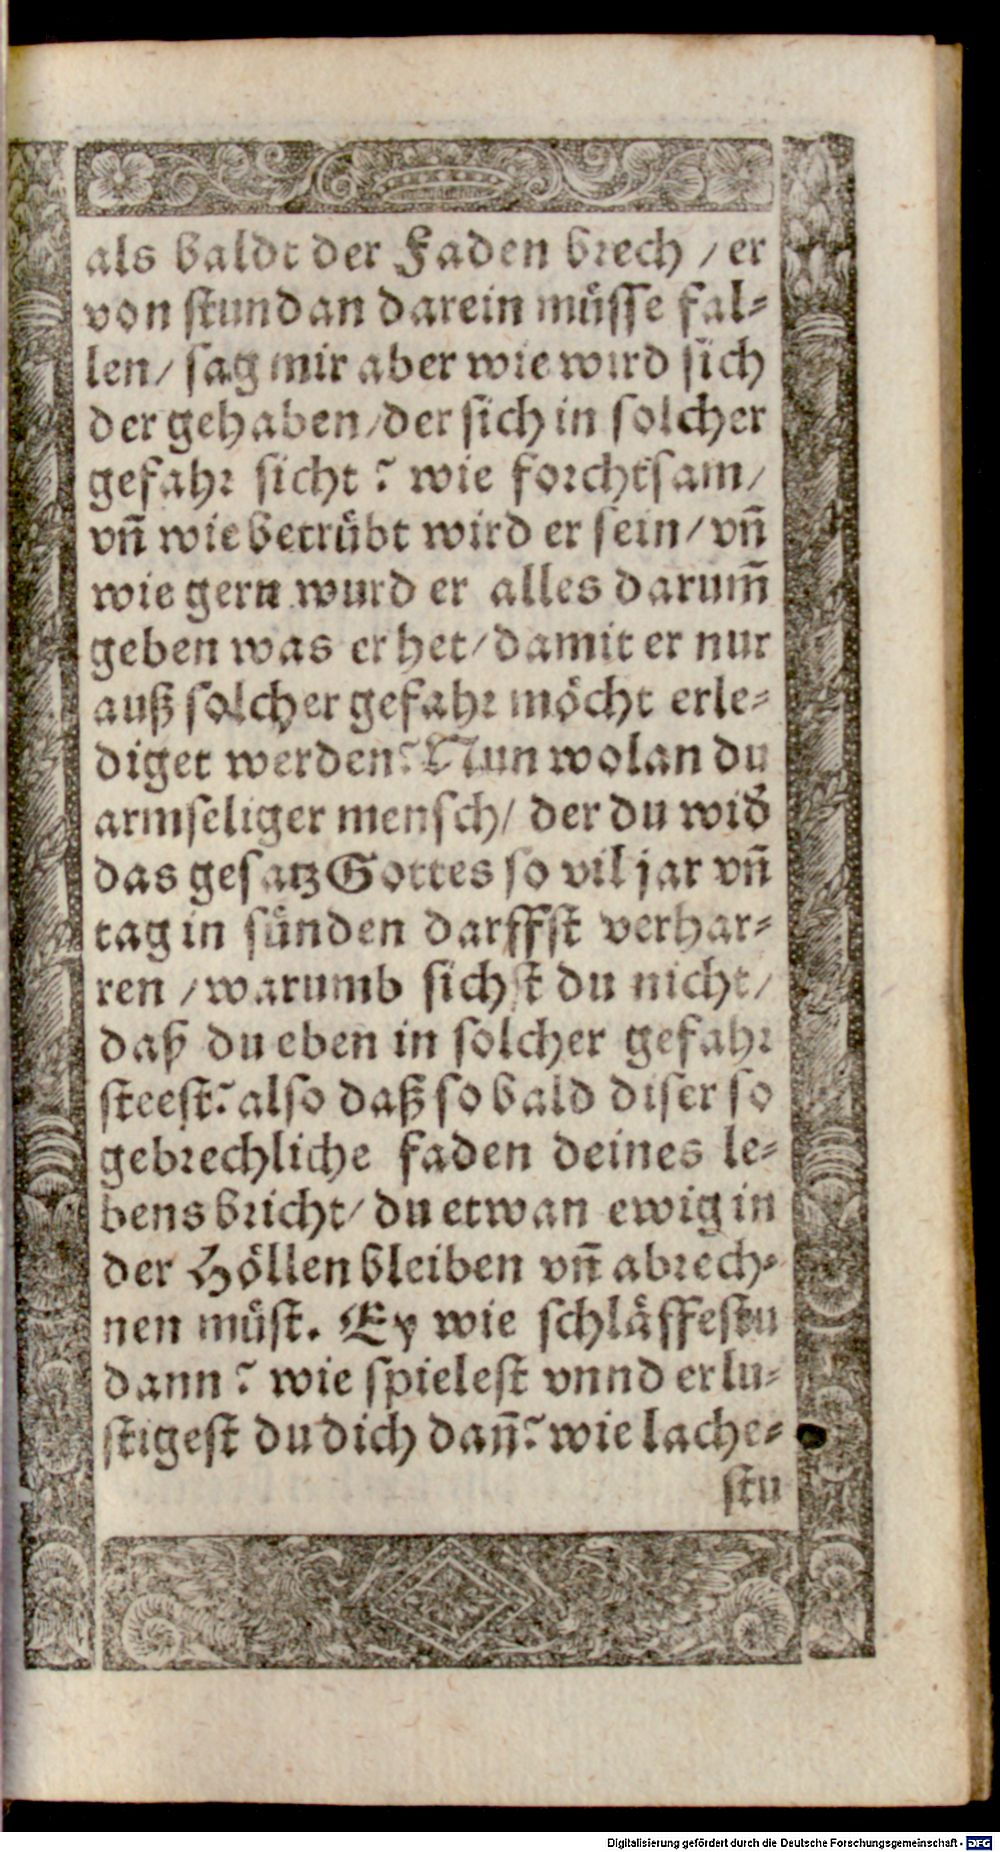 als baldt der Faden brech / er
von stund an darein müsse fal⸗
len / sag mir aber wie wird sich
der gehaben / der sich in solcher
gefahr sicht? wie forchtsam /
vñ wie betrübt wird er sein / vñ
wie gern wurd er alles darum̃
geben was er het / damit er nur
auß solcher gefahr möcht erle⸗
diget werden? Nun wolan du
armseliger mensch / der du wid̕
das gesatz Gottes so vil jar vñ
tag in sünden darffst verhar⸗
ren / warumb sichst du nicht /
daß du eben in solcher gefahr
steest? also daß so bald diser so
gebrechliche faden deines le⸗
bens bricht / du etwan ewig in
der Höllen bleiben vñ abrech⸗
nen müst. Ey wie schläffestu
dann? wie spielest vnnd erlu⸗
stigest du dich dañ? wie lache⸗
stu
Digitalisierung gefördert durch die Deutsche Forschungsgemeinschaft - DFG